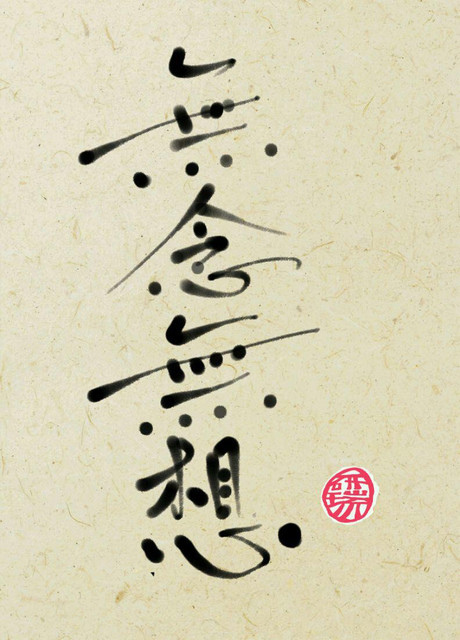 無念無想